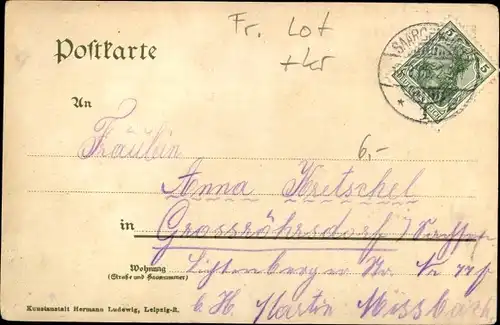 Fr. Lot
+kr
SAARGE
5 5
Postkarte
An
6,-
Fräulein
Anna Kretschel
in Grossröhrsdorf / Sachsen
Wohnung
(Straße und Hausnummer)
Lichtenberger
b. H. Martin Missbach
Kunstanstalt Hermann Ludewig, Leipzig-R.